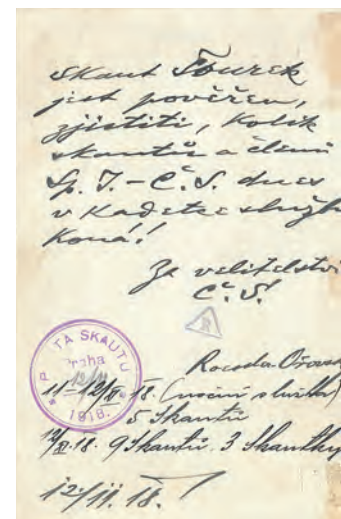 Skaut Šourek
jest pověřen,
zjistiti, kolik
skautů a členů
Sp. J. - Č. S. dnes
v Kadetce službu
koná!
Za velitelství
Č. S.
POŠTA SKAUTŮ
Praha
1918.
11-12/XI. 18. (noční služba)
5 skautů
12/XI. 18. 9 skautů. 3 skautky
12/11. 18.